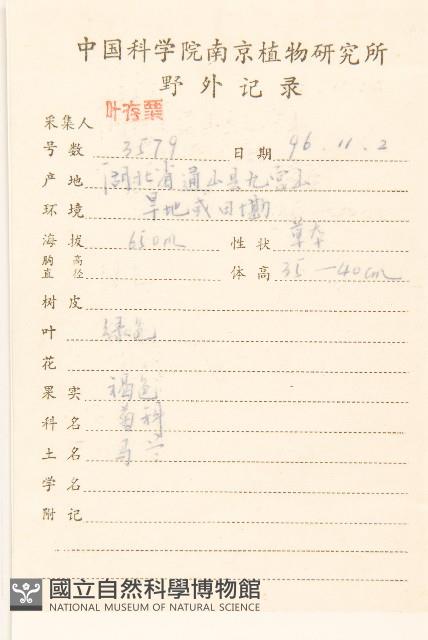 中国科学院南京植物研究所
野外记录
采集人 叶存粟
号数 3579 日期 96.11.2
产地 湖北省通山县九宫山
环境 旱地或田塝
海拔 650m 性状 草本
胸高直径 体高 35—40cm
树皮
叶 绿色
花
果实 褐色
科名 菊科
土名 马兰
学名
附记
國立自然科學博物館
NATIONAL MUSEUM OF NATURAL SCIENCE